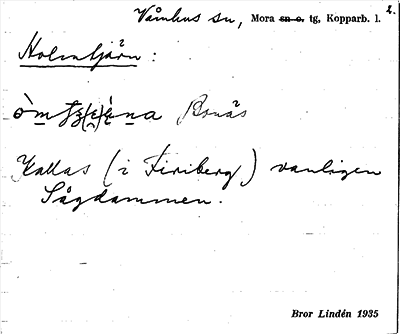 Våmhus sn, Mora sn o. tg, Kopparb. l.
2.
Holmtjärn :
Bonäs
Kallas (i Firiberg) vanligen
Sågdammen.
Bror Lindén 1935